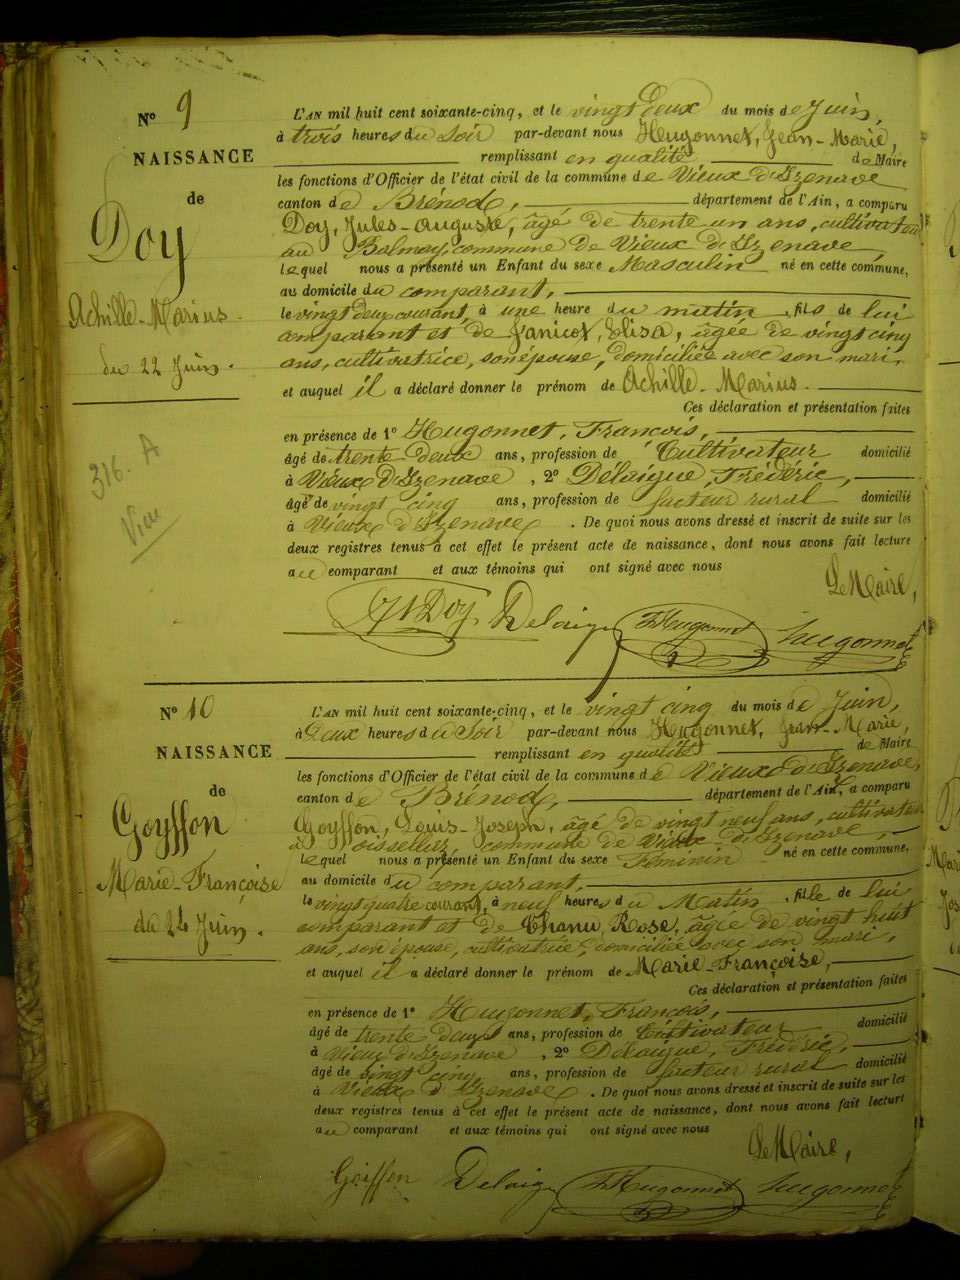 N° 9
NAISSANCE
de
Doy
Achille-Marius.
du 22 Juin.
316. A
L'AN mil huit cent soixante-cinq, et le vingt deux du mois de Juin,
à trois heures du Soir par-devant nous Hugonnet, Jean-Marie,
remplissant en qualité de Maire
les fonctions d'Officier de l'état civil de la commune de Vieux d'Izenave
canton de Brénod, département de l'Ain, a comparu
Doy, Jules-auguste, âgé de trente un ans, cultivateur
au Balmay, commune de Vieux d'Izenave
lequel nous a présenté un Enfant du sexe Masculin né en cette commune,
au domicile du comparant,
le vingt deux courant, à une heure du matin, fils de lui
comparant et de Janicot, Elisa, âgée de vingt cinq
ans, cultivatrice, son épouse, domiciliée avec son mari,
et auquel il a déclaré donner le prénom de Achille-Marius.
Ces déclaration et présentation faites
en présence de 1° Hugonnet, François,
âgé de trente deux ans, profession de Cultivateur domicilié
à Vieux d'Izenave, 2° Delaigue, Frédéric,
âgé de vingt cinq ans, profession de facteur rural domicilié
à Vieux d'Izenave. De quoi nous avons dressé et inscrit de suite sur les
deux registres tenus à cet effet le présent acte de naissance, dont nous avons fait lecture
au comparant et aux témoins qui ont signé avec nous
Le Maire,
Doy Delaigue Hugonnet Hugonnet
N° 10
NAISSANCE
de
Goyffon
Marie-Françoise
du 24 Juin.
L'AN mil huit cent soixante-cinq, et le vingt cinq du mois de Juin,
à Deux heures du Soir par-devant nous Hugonnet, Jean-Marie,
remplissant en qualité de Maire
les fonctions d'Officier de l'état civil de la commune de Vieux d'Izenave,
canton de Brénod, département de l'Ain, a comparu
Goyffon, Louis-Joseph, âgé de vingt neuf ans, cultivateur
commune de Vieux d'Izenave
lequel nous a présenté un Enfant du sexe Féminin né en cette commune,
au domicile du comparant,
le vingt quatre courant, à neuf heures du Matin, fille de lui
comparant et de Chanu, Rose, âgée de vingt huit
ans, son épouse, cultivatrice, domiciliée avec son mari,
et auquel il a déclaré donner le prénom de Marie-Françoise,
Ces déclaration et présentation faites
en présence de 1° Hugonnet, François,
âgé de trente deux ans, profession de Cultivateur domicilié
à Vieux d'Izenave, 2° Delaigue, Frédéric,
âgé de vingt cinq ans, profession de facteur rural domicilié
à Vieux d'Izenave. De quoi nous avons dressé et inscrit de suite sur les
deux registres tenus à cet effet le présent acte de naissance, dont nous avons fait lecture
au comparant et aux témoins qui ont signé avec nous
Le Maire,
Goiffon Delaigue Hugonnet Hugonnet